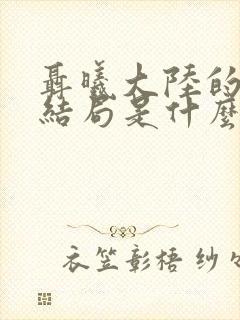 聶曦大陸的
結局是什麼
衣笠彰梧 纱